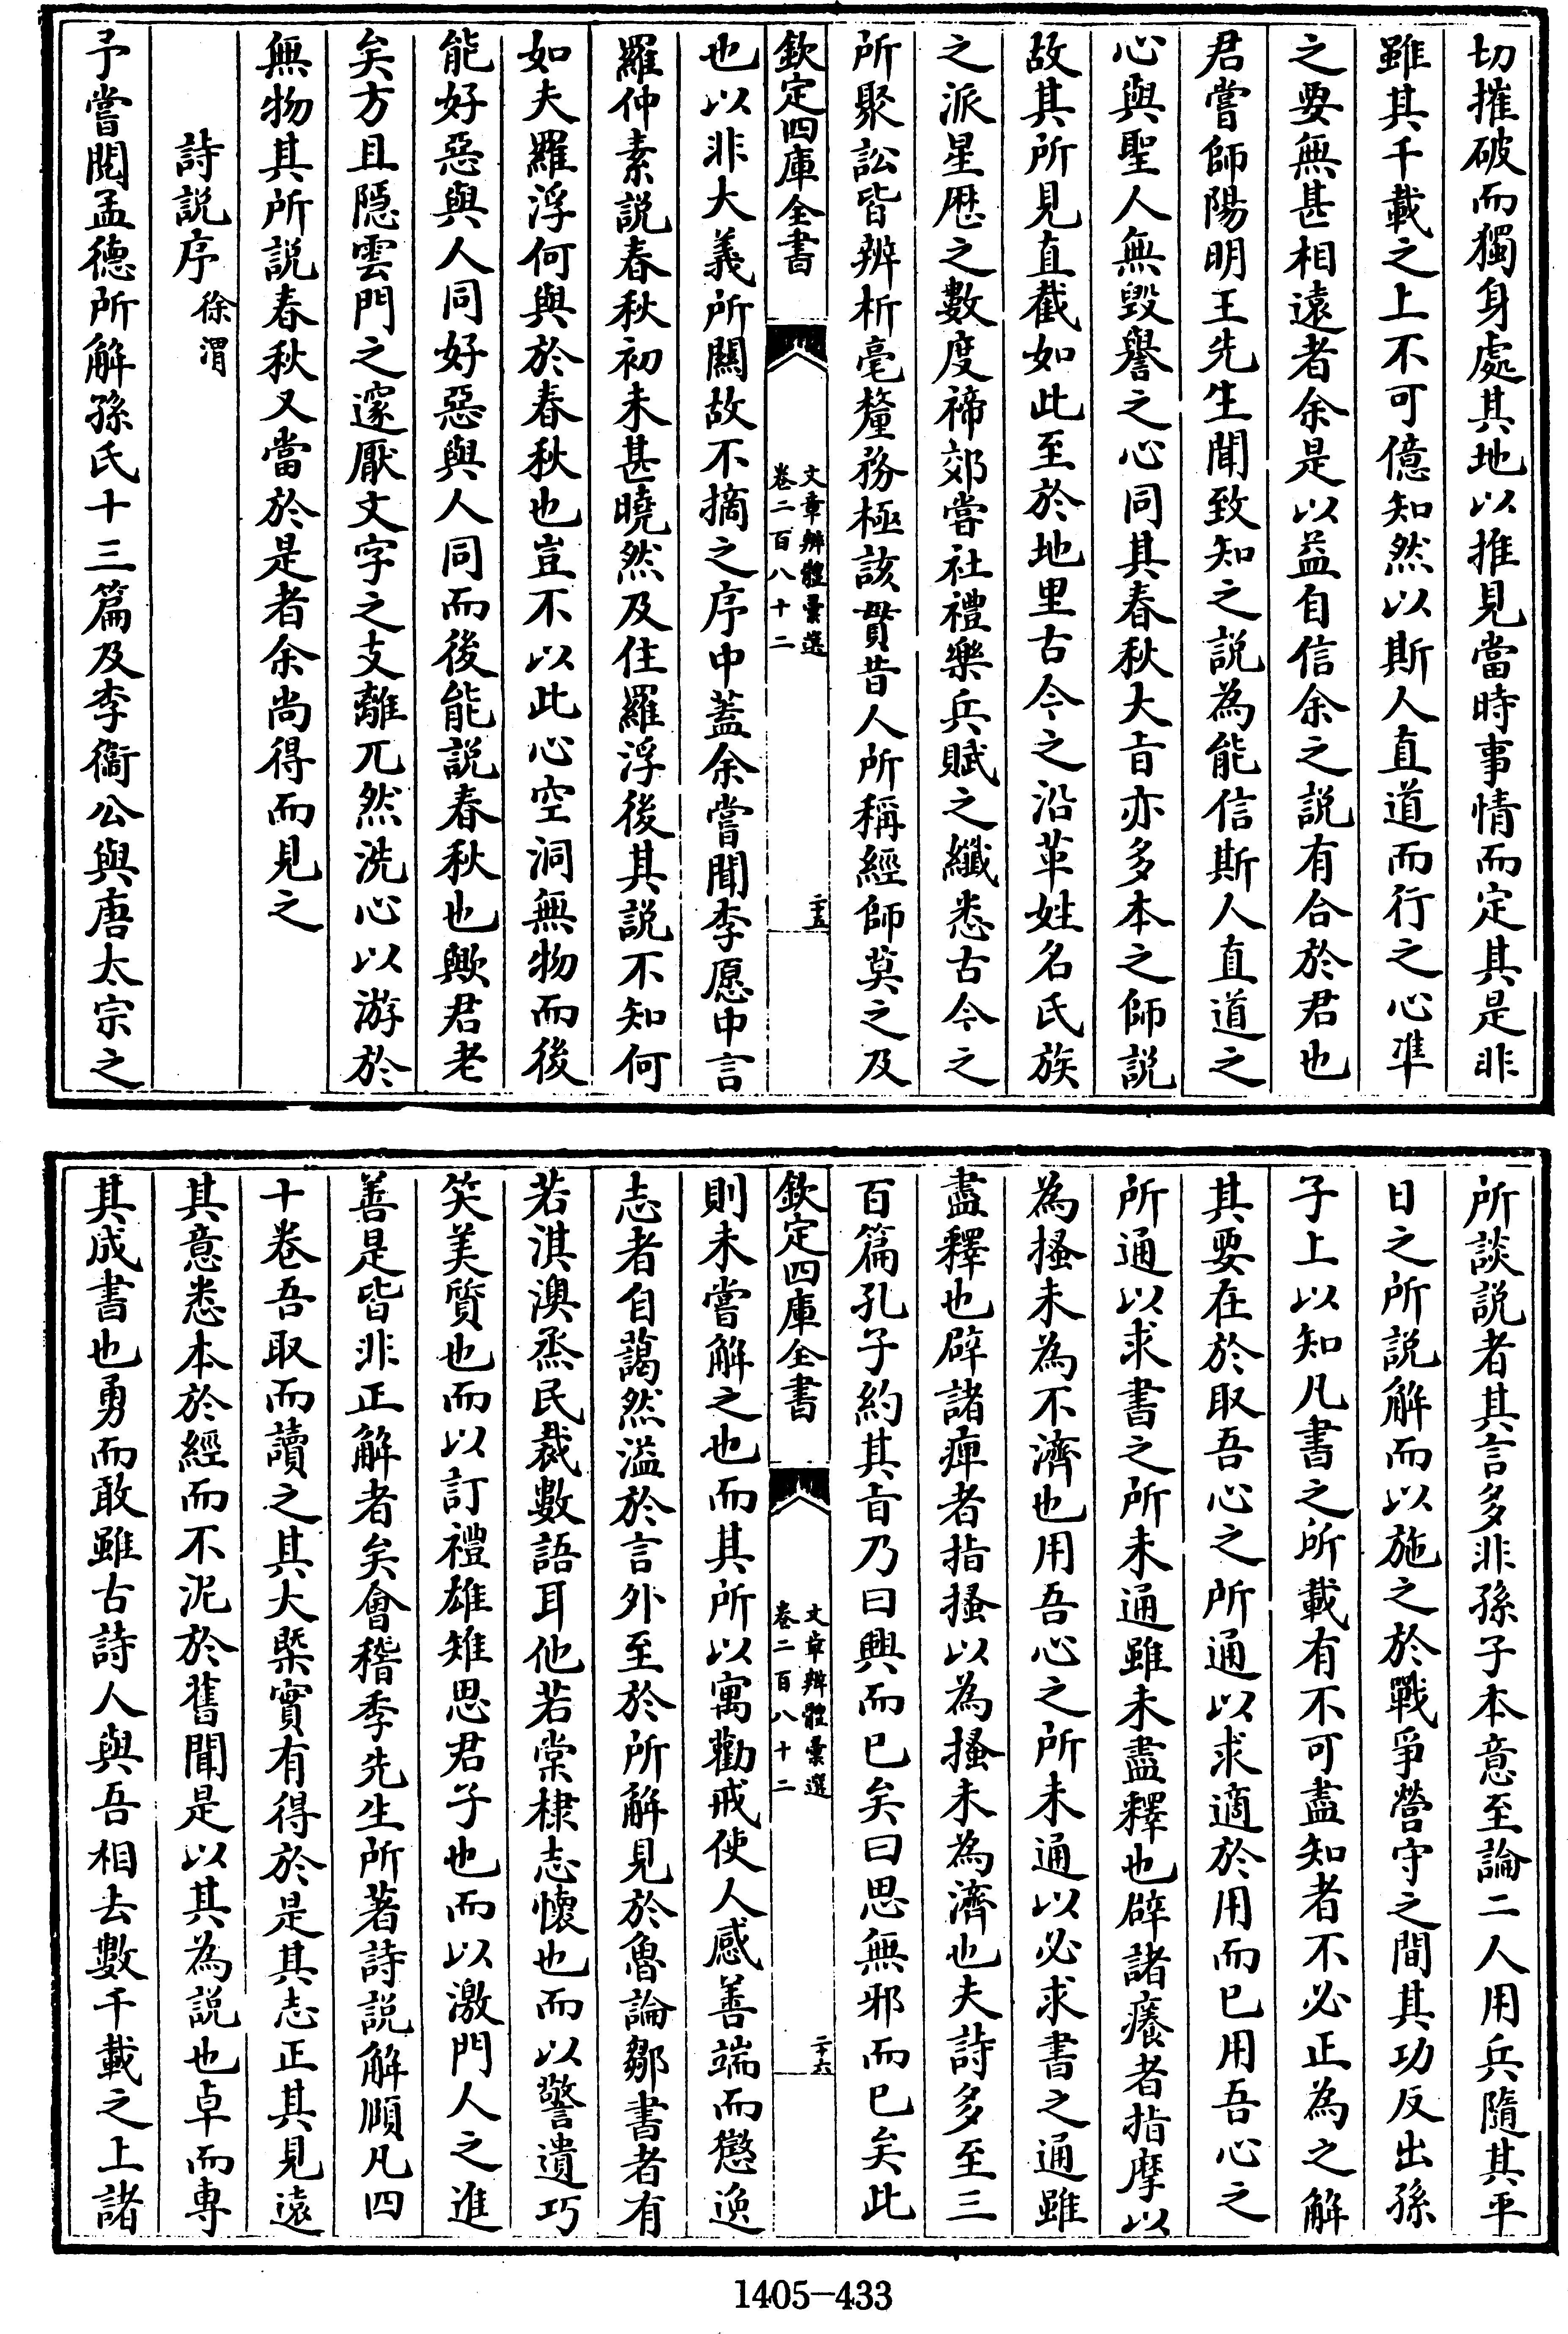 切摧破而獨身處其地以推見當時事情而定其是非
雖其千載之上不可億知然以斯人直道而行之心準
之要無甚相遠者余是以益自信余之説有合於君也
君嘗師陽明王先生聞致知之説為能信斯人直道之
心與聖人無毀譽之心同其春秋大㫖亦多本之師説
故其所見直截如此至於地里古今之沿革姓名氏族
之派星厯之數度禘郊嘗社禮樂兵賦之纖悉古今之
所聚訟皆辨析毫釐務極該貫昔人所稱經師莫之及
欽定四庫全書
文章辨體彚選
卷二百八十二
二十五
也以非大義所闗故不摘之序中蓋余嘗聞李愿中言
羅仲素説春秋初未甚曉然及住羅浮後其説不知何
如夫羅浮何與於春秋也豈不以此心空洞無物而後
能好惡與人同好惡與人同而後能説春秋也歟君老
矣方且隱雲門之邃厭文字之支離兀然洗心以游於
無物其所説春秋又當於是者余尚得而見之
詩説序 徐渭
予嘗閲孟德所解孫氏十三篇及李衞公與唐太宗之
所談説者其言多非孫子本意至論二人用兵隨其平
日之所説解而以施之於戰爭營守之間其功反出孫
子上以知凡書之所載有不可盡知者不必正為之解
其要在於取吾心之所通以求適於用而已用吾心之
所通以求書之所未通雖未盡釋也辟諸癢者指摩以
為搔未為不濟也用吾心之所未通以必求書之通雖
盡釋也辟諸痺者指搔以為搔未為濟也夫詩多至三
百篇孔子約其㫖乃曰興而已矣曰思無邪而已矣此
欽定四庫全書
文章辨體彚選
卷二百八十二
二十六
則未嘗解之也而其所以寓勸戒使人感善端而懲逸
志者自藹然溢於言外至於所解見於魯論鄒書者有
若淇澳烝民裁數語耳他若棠棣志懷也而以警遺巧
笑美質也而以訂禮雄雉思君子也而以激門人之進
善是皆非正解者矣會稽季先生所著詩説解頤凡四
十卷吾取而讀之其大槩實有得於是其志正其見遠
其意悉本於經而不泥於舊聞是以其為説也卓而専
其成書也勇而敢雖古詩人與吾相去數千載之上諸
1405-433